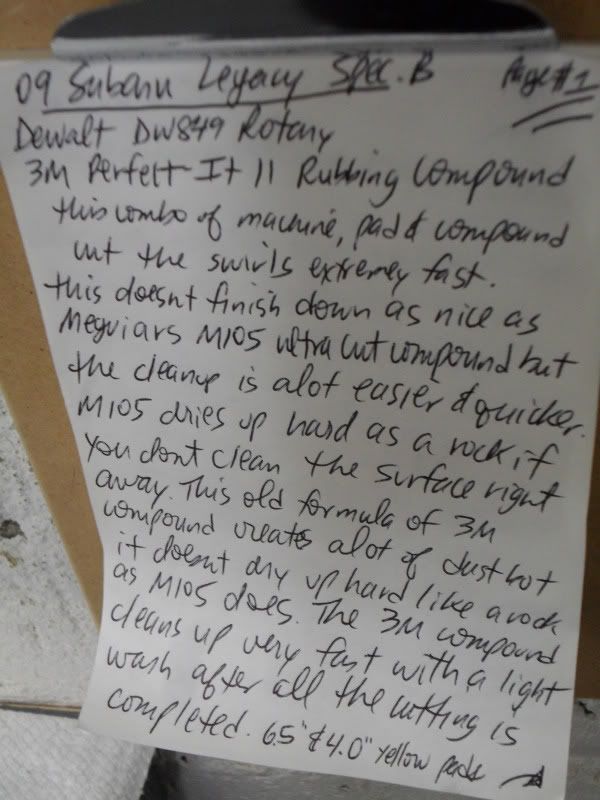 09 Subaru Legacy Spec. B Page #1
Dewalt DW849 Rotary
3M Perfect-It II Rubbing Compound
this combo of machine, pad & compound
cut the swirls extremey fast.
this doesnt finish down as nice as
Meguiars M105 ultra cut compound but
the cleanup is alot easier & quicker.
M105 dries up hard as a rock if
you dont clean the surface right
away. This old formula of 3M
compound creates alot of dust but
it doesnt dry up hard like a rock
as M105 does. The 3M compound
cleans up very fast with a light
wash after all the cutting is
completed. 6.5" & 4.0" yellow pads